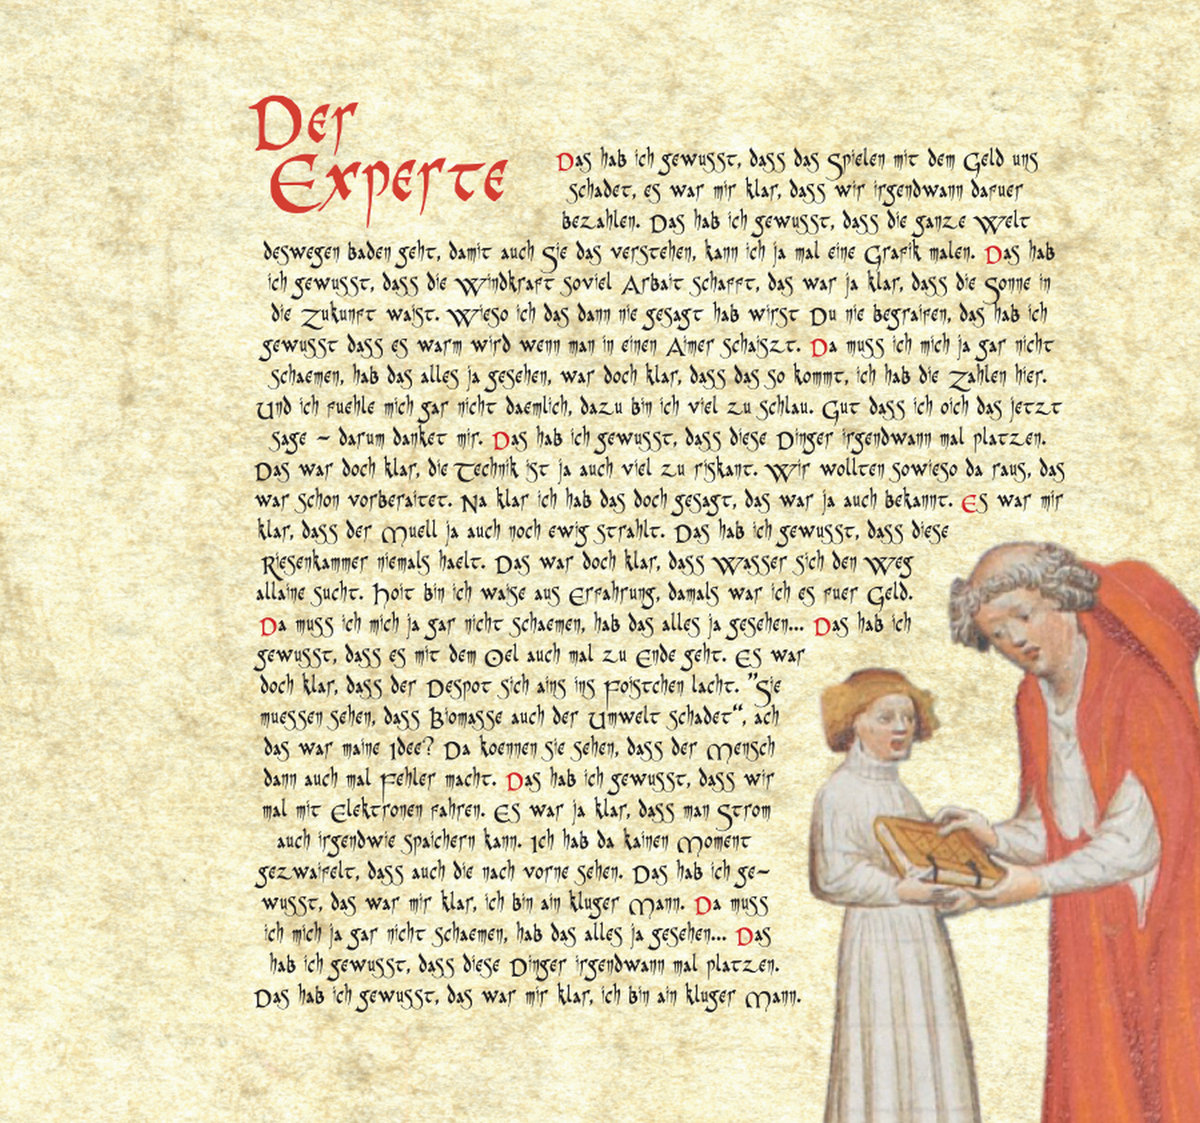 Der
Experte
Das hab ich gewusst, dass das Spielen mit dem Geld uns
schadet, es war mir klar, dass wir irgendwann dafuer
bezahlen. Das hab ich gewusst, dass die ganze Welt
deswegen baden geht, damit auch Sie das verstehen, kann ich ja mal eine Grafik malen. Das hab
ich gewusst, dass die Windkraft soviel Arbait schafft, das war ja klar, dass die Sonne in
die Zukunft waist. Wieso ich das dann nie gesagt hab wirst Du nie begraifen, das hab ich
gewusst dass es warm wird wenn man in einen Aimer schaiszt. Da muss ich mich ja gar nicht
schaemen, hab das alles ja gesehen, war doch klar, dass das so kommt, ich hab die Zahlen hier.
Und ich fuehle mich gar nicht daemlich, dazu bin ich viel zu schlau. Gut dass ich oich das jetzt
sage - darum danket mir. Das hab ich gewusst, dass diese Dinger irgendwann mal platzen.
Das war doch klar, die Technik ist ja auch viel zu riskant. Wir wollten sowieso da raus, das
war schon vorberaitet. Na klar ich hab das doch gesagt, das war ja auch bekannt. Es war mir
klar, dass der Muell ja auch noch ewig strahlt. Das hab ich gewusst, dass diese
Riesenkammer niemals haelt. Das war doch klar, dass Wasser sich den Weg
allaine sucht. Hoit bin ich waise aus Erfahrung, damals war ich es fuer Geld.
Da muss ich mich ja gar nicht schaemen, hab das alles ja gesehen... Das hab ich
gewusst, dass es mit dem Oel auch mal zu Ende geht. Es war
doch klar, dass der Despot sich ains ins Foistchen lacht. "Sie
muessen sehen, dass Biomasse auch der Umwelt schadet“, ach
das war maine Idee? Da koennen sie sehen, dass der Mensch
dann auch mal Fehler macht. Das hab ich gewusst, dass wir
mal mit Elektronen fahren. Es war ja klar, dass man Strom
auch irgendwie spaichern kann. Ich hab da kainen Moment
gezwaifelt, dass auch die nach vorne sehen. Das hab ich ge-
wusst, das war mir klar, ich bin ain kluger Mann. Da muss
ich mich ja gar nicht schaemen, hab das alles ja gesehen... Das
hab ich gewusst, dass diese Dinger irgendwann mal platzen.
Das hab ich gewusst, das war mir klar, ich bin ain kluger Mann.